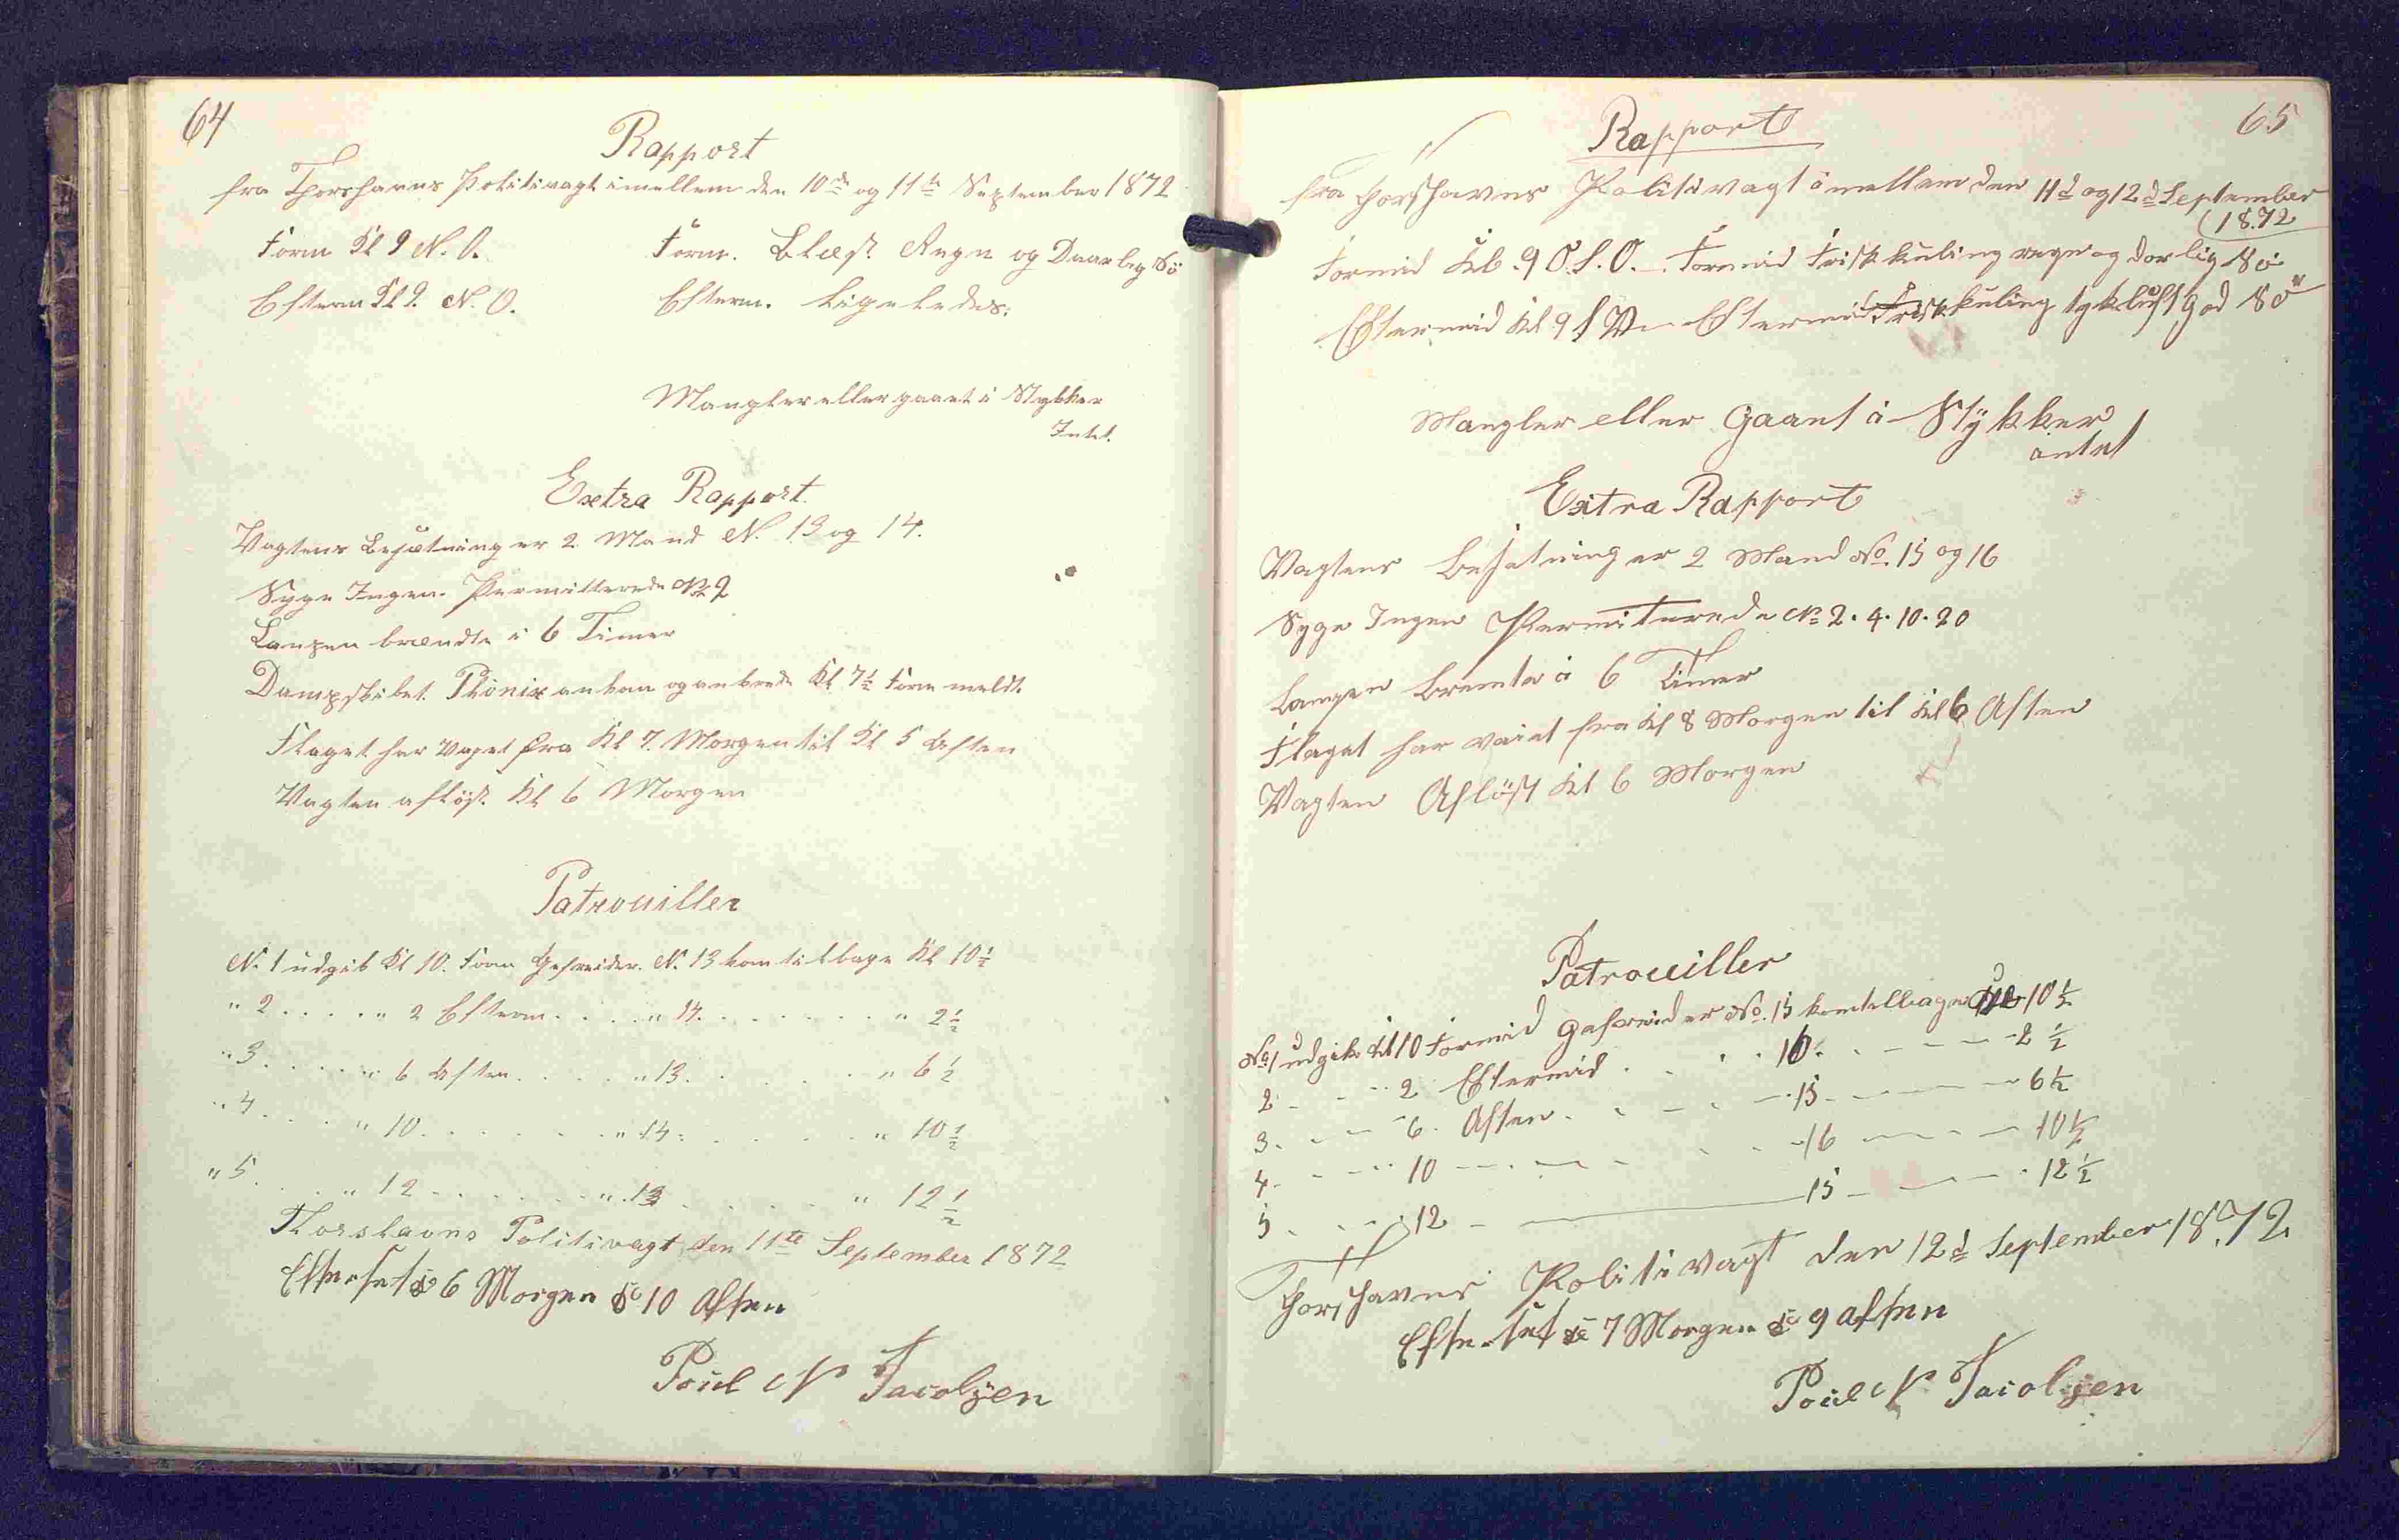 64
Rapport
fra Thorshavns Politivagt imellem den 10de og 11te September 1872
Form Kl 9 N. O. Form. Blæst Regn og Daarlig Sö
Efterm Kl 9. N. O. Efterm. Ligeledes.
Mangler eller gaaet i Stykker
Intet.
Extra Rapport
Vagtens Besætning er 2 Mand N. 13 og 14.
Syge Ingen. Permitterede No 2
Lampen brændte i 6 Timer
Dampskibet Phönix ankom og ankrede Kl 7½ Form meldt
Flaget har Vaget fra Kl 7. Morgen til Kl 5 Aften
Vagten aflöst Kl 6 Morgen
Patrouiller
N. 1 udgik Kl 10. Form Gefreider. N. 13 kom tilbage Kl 10½
" 2 . . . . " 2 Efterm. . . . " 14. . . . . . . " 2½
" 3 . . . . " 6 Aften. . . . " 13. . . . . . " 6½
" 4 . . . . " 10. . . . . . . " 14. . . . . . " 10½
" 5 . . . " 12 . . . . . . " 13 . . . . . " 12½
Thorshavns Politivagt den 11te September 1872
Efterset Kl 6 Morgen Kl 10 Aften
Poul N Jacobsen
65
Rapport
fra Thorshavns Politivagt imellem den 11d og 12d September
1872
Formid Kl. 9 O. S. O. - Formid Frisk kuling regn og dorlig Sö
Eftermid Kl 9 S V - Eftermid Frisk kuling tyk luft god Sö
Mangler eller Gaaet i Stykker
intet
Extra Rapport
Vagtens Besatning er 2 Mand No. 15 og 16
Syge Ingen Permiterede No 2. 4. 10. 20
Lampen bremte i 6 Timer
Flaget har vaiet fra Kl 8 Morgen til Kl 6 Aften
Vagten Aflöst Kl 6 Morgen
Patrouiller
No 1 udgik Kl 10 Formid Gefreider No. 15 kom telbage Kl 10½
2 - - - 2 Eftermid . . . 16. . - - - - 2½
3. - - - 6. Aften. - - - - 15 - - - - 6½
4 - - - 10 - - - - - - 16 - - - - 10½
5 - - - 12 - - 15 - - - - 12½
Thorshavns Politivagt den 12d September 1872
Efterset Kl 7 Morgen Kl 9 Aften
Poul N Jacobsen